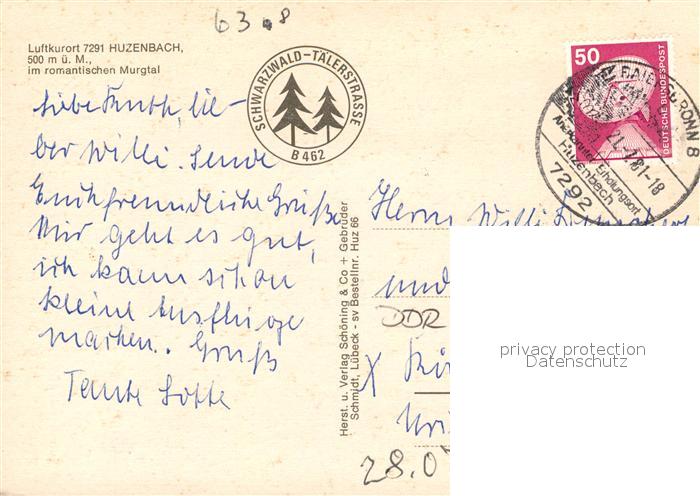 63 .8
Luftkurort 7291 HUZENBACH,
500 m ü. M.,
im romantischen Murgtal
SCHWARZWALD - TÄLERSTRASSE
B 462
50
DEUTSCHE BUNDESPOST
BAIERSBRONN 8
-7.81-18
Anerkannter Erholungsort
Huzenbach
7292
Liebe Ruth, lie-
ber Willi. Sende
Euch freundliche Grüße
Mir geht es gut,
ich kann schon
kleine Ausflüge
machen. Gruß
Tante Lotte
Herst. u. Verlag Schöning & Co + Gebrüder
Schmidt, Lübeck - sv Bestellnr. Huz 66
Herrn Willi
und
DDR
X
28.0
privacy protection
Datenschutz